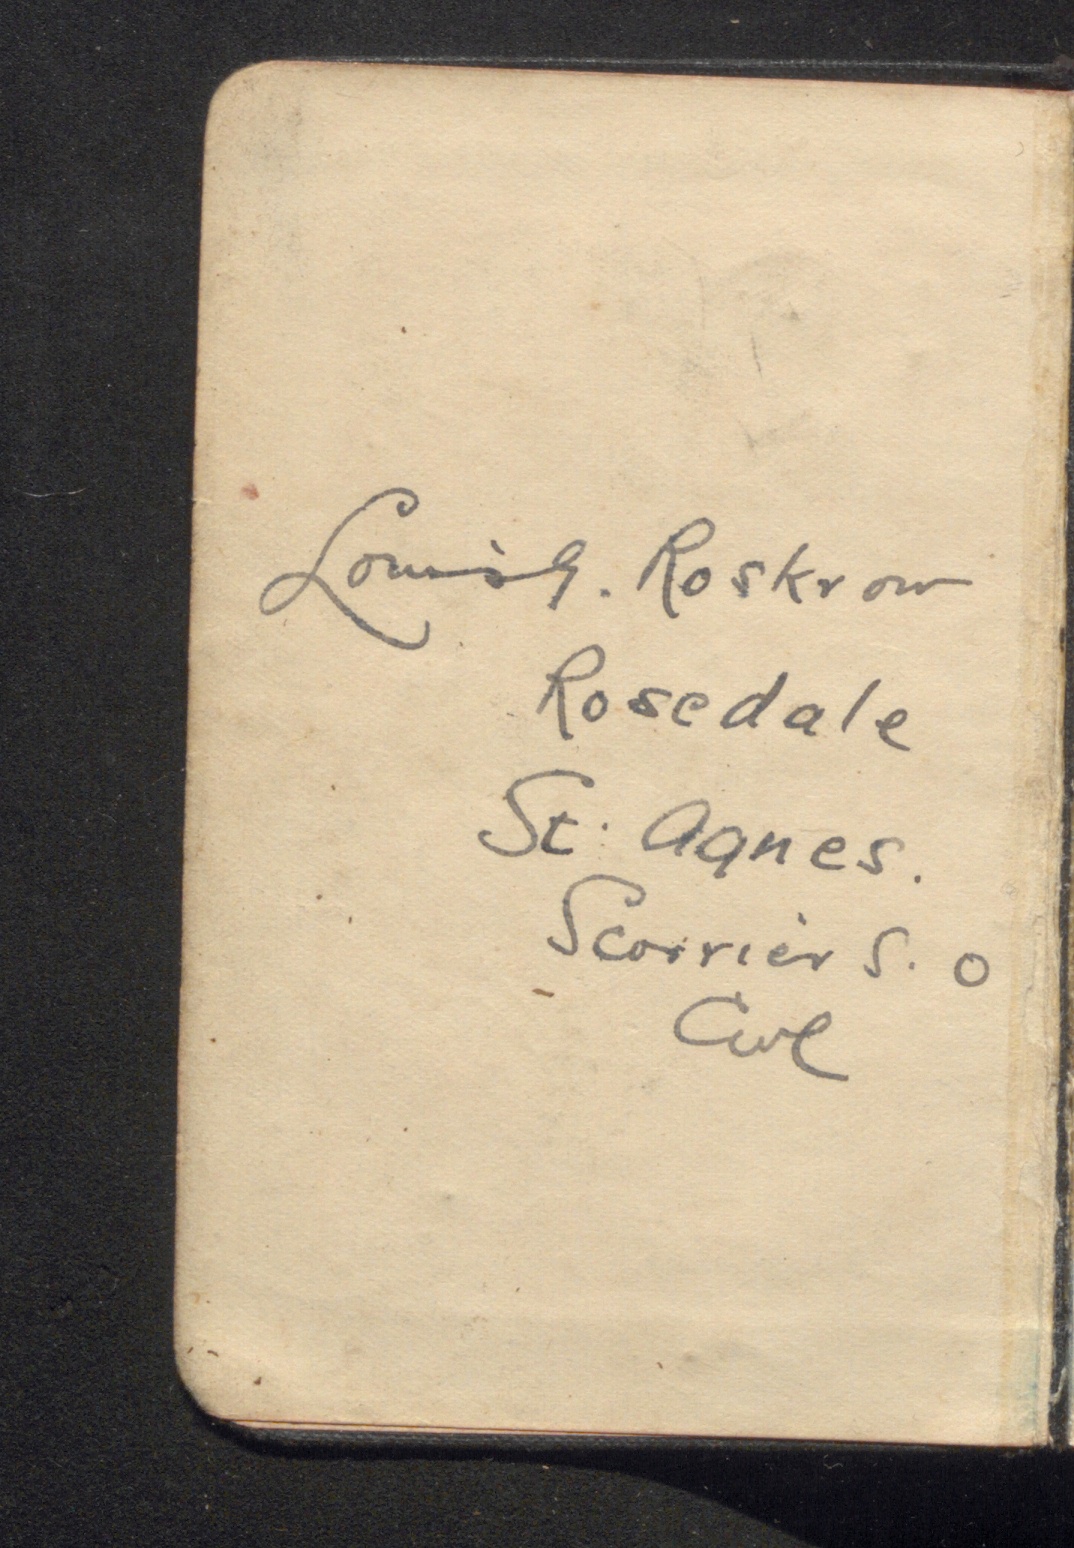 Louis G. Roskrow
Rosedale
St. Agnes.
Scorrier S. O
Cwl